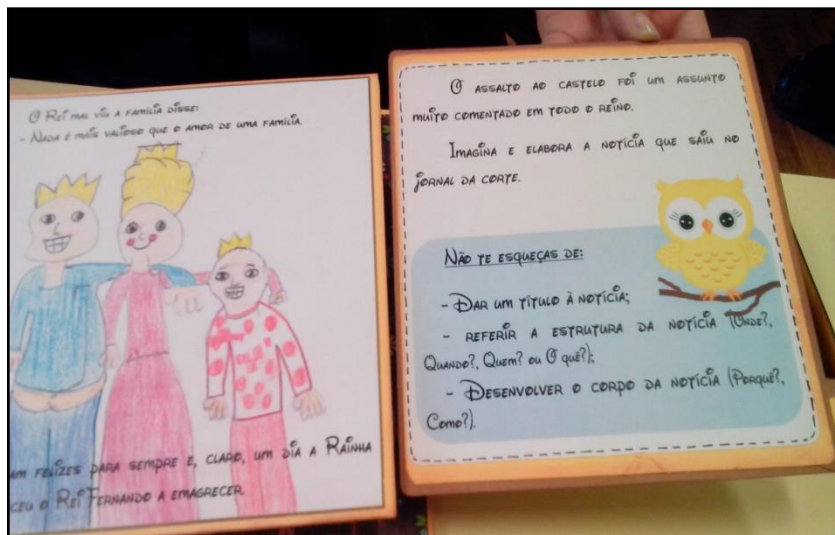 O Rei mal viu a família disse:
- Nada é mais valioso que o amor de uma família.
am felizes para sempre e, claro, um dia a Rainha
ceu o Rei Fernando a emagrecer.
O assalto ao castelo foi um assunto
muito comentado em todo o reino.
Imagina e elabora a notícia que saiu no
jornal da corte.
Não te esqueças de:
- Dar um título à notícia;
- referir a estrutura da notícia (Onde?,
Quando?, Quem? ou O quê?);
- Desenvolver o corpo da notícia (Porquê?,
Como?).